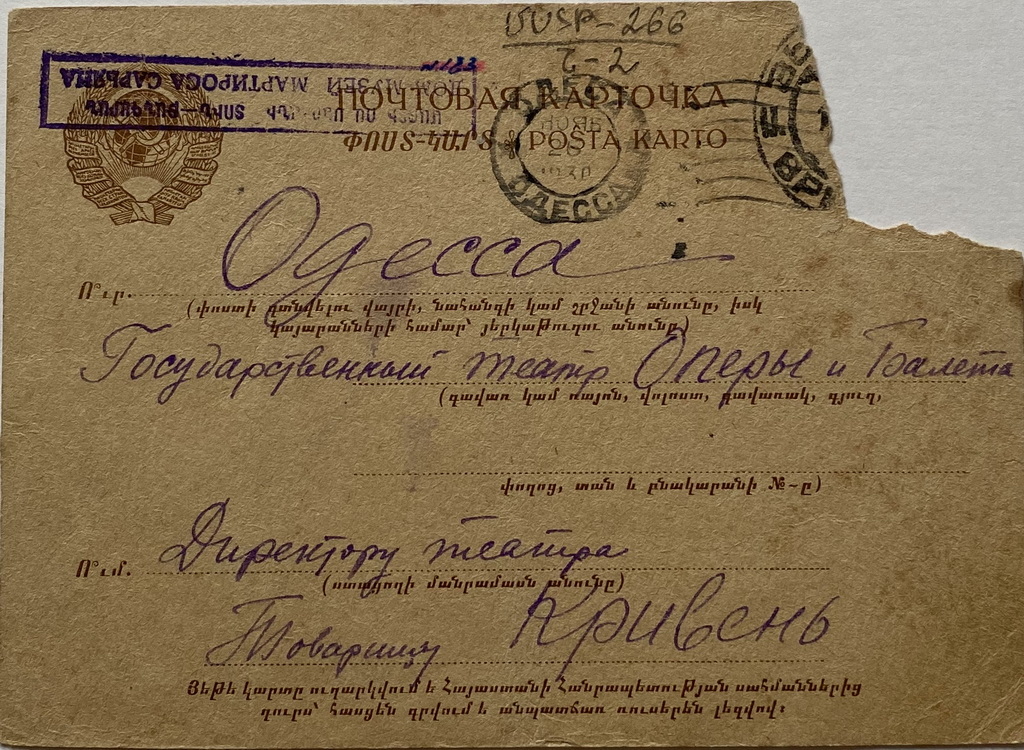 ՄՍՏ-266
Ը-2
№ 133
ДОМ-МУЗЕЙ МАРТИРОСА САРЬЯНА
ПОЧТОВАЯ КАРТОЧКА
ՓՈՍՏ-ԿԱՐՏ ✻ POŜTA KARTO
ОДЕССА
Одесса
Ո՞ւր.
(փոստի գտնվելու վայրի, նահանգի կամ շրջանի անունը, իսկ
կայարանների համար՝ յերկաթուղու անունը)
Государственный театр Оперы и Балета
(գավառ կամ ռայոն, վոլոստ, գավառակ, գյուղ,
փողոց, տան և բնակարանի №-ը)
Ո՞ւմ.
Директору театра
(ստացողի մանրամասն անունը)
Товарищу Кривень
Յեթե կարտը ուղարկվում է Հայաստանի Հանրապետության սահմաններից
դուրս՝ հասցեն գրվում է անպատճառ ռուսերեն լեզվով։